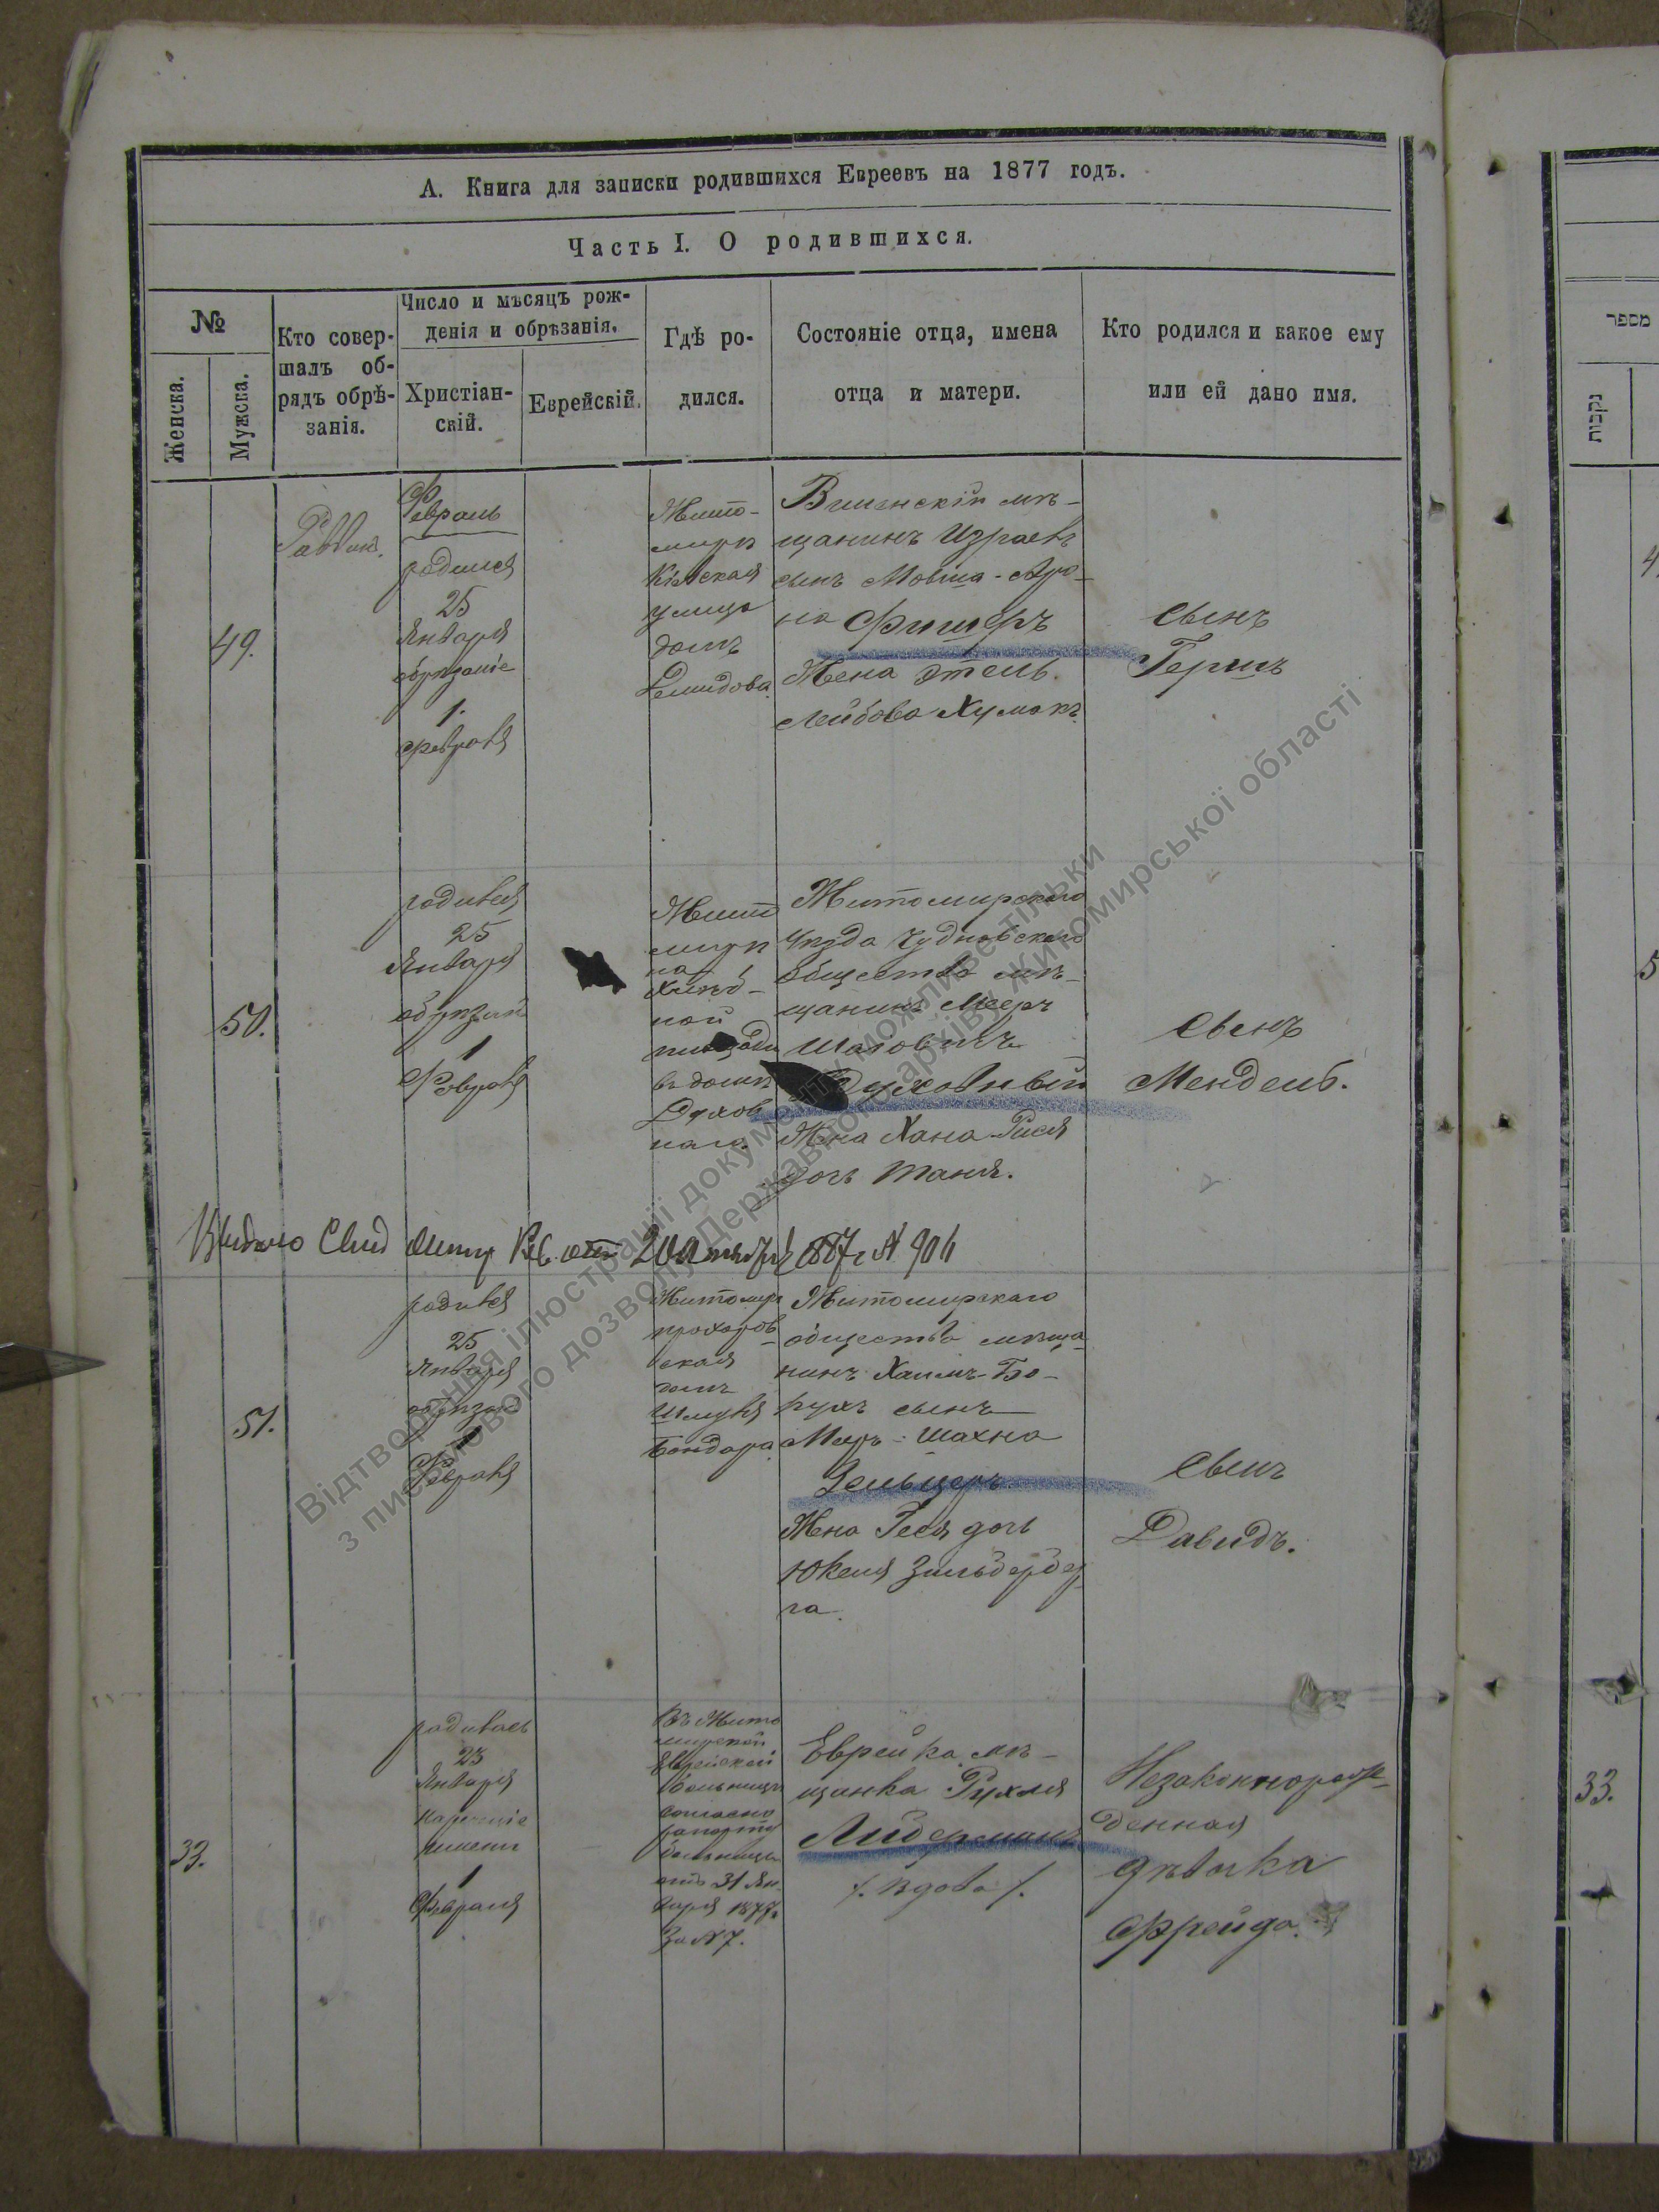 А. Книга для записки родившихся Евреевъ на 1877 годъ.
Часть I. О родившихся.
№
Женска.
Мужска.
Кто совер-
шалъ об-
рядъ обрѣ-
занія.
Число и мѣсяцъ рож-
денія и обрѣзанія.
Христіан-
скій.
Еврейскій.
Гдѣ ро-
дился.
Состояніе отца, имена
отца и матери.
Кто родился и какое ему
или ей дано имя.
49.
Раввин.
Февраль
родился
25
Января
обрѣзаніе
1.
февраля
Жито-
миръ
Кіевская
улица
домъ
Демидова.
мѣ-
щанинъ Израель
сынъ Мовша-Аро-
на Фишеръ
Жена Этель.
Лейбова
сынъ
Гершъ
50.
родився
25
Января
1
Февраля
Жито
миръ
на
Хлѣб-
ной
площади
въ домѣ
Духов
наго.
Житомирскаго
Уѣзда Чудновскаго
общества мѣ-
щанинъ Мееръ
Духовный
Жена Хана-Рися
дочь
сынъ
Мендель.
Видано Свид 1887 г № 904
51.
родився
25
Января
1
Февраля
Житомиръ
прохоров
ская
домъ
Шмуля
Бондара.
Житомирскаго
общества мѣща-
нинъ Хаимъ-Бо-
рухъ сынъ
Мееръ-Шахна
Зельцеръ
Жена Геся дочь
Юкеля Зильбербер
га.
сынъ
Давидъ.
33.
родилась
23
Января
нареченіе
имени
1
Февраля
Въ Жито
мирской
Еврейской
больницѣ
согласно
рапорту
больницы
отъ 31 Ян-
варя 1877 г.
За № 7.
Еврейка мѣ-
щанка Рухля
Лидерманъ
/. вдова /.
Незаконнорож-
денная
дѣвочка
Фрейда.
מספר
נקבות
33.
Відтворення ілюстрації документу можливе тільки
з письмового дозволу Державного архіву Житомирської області